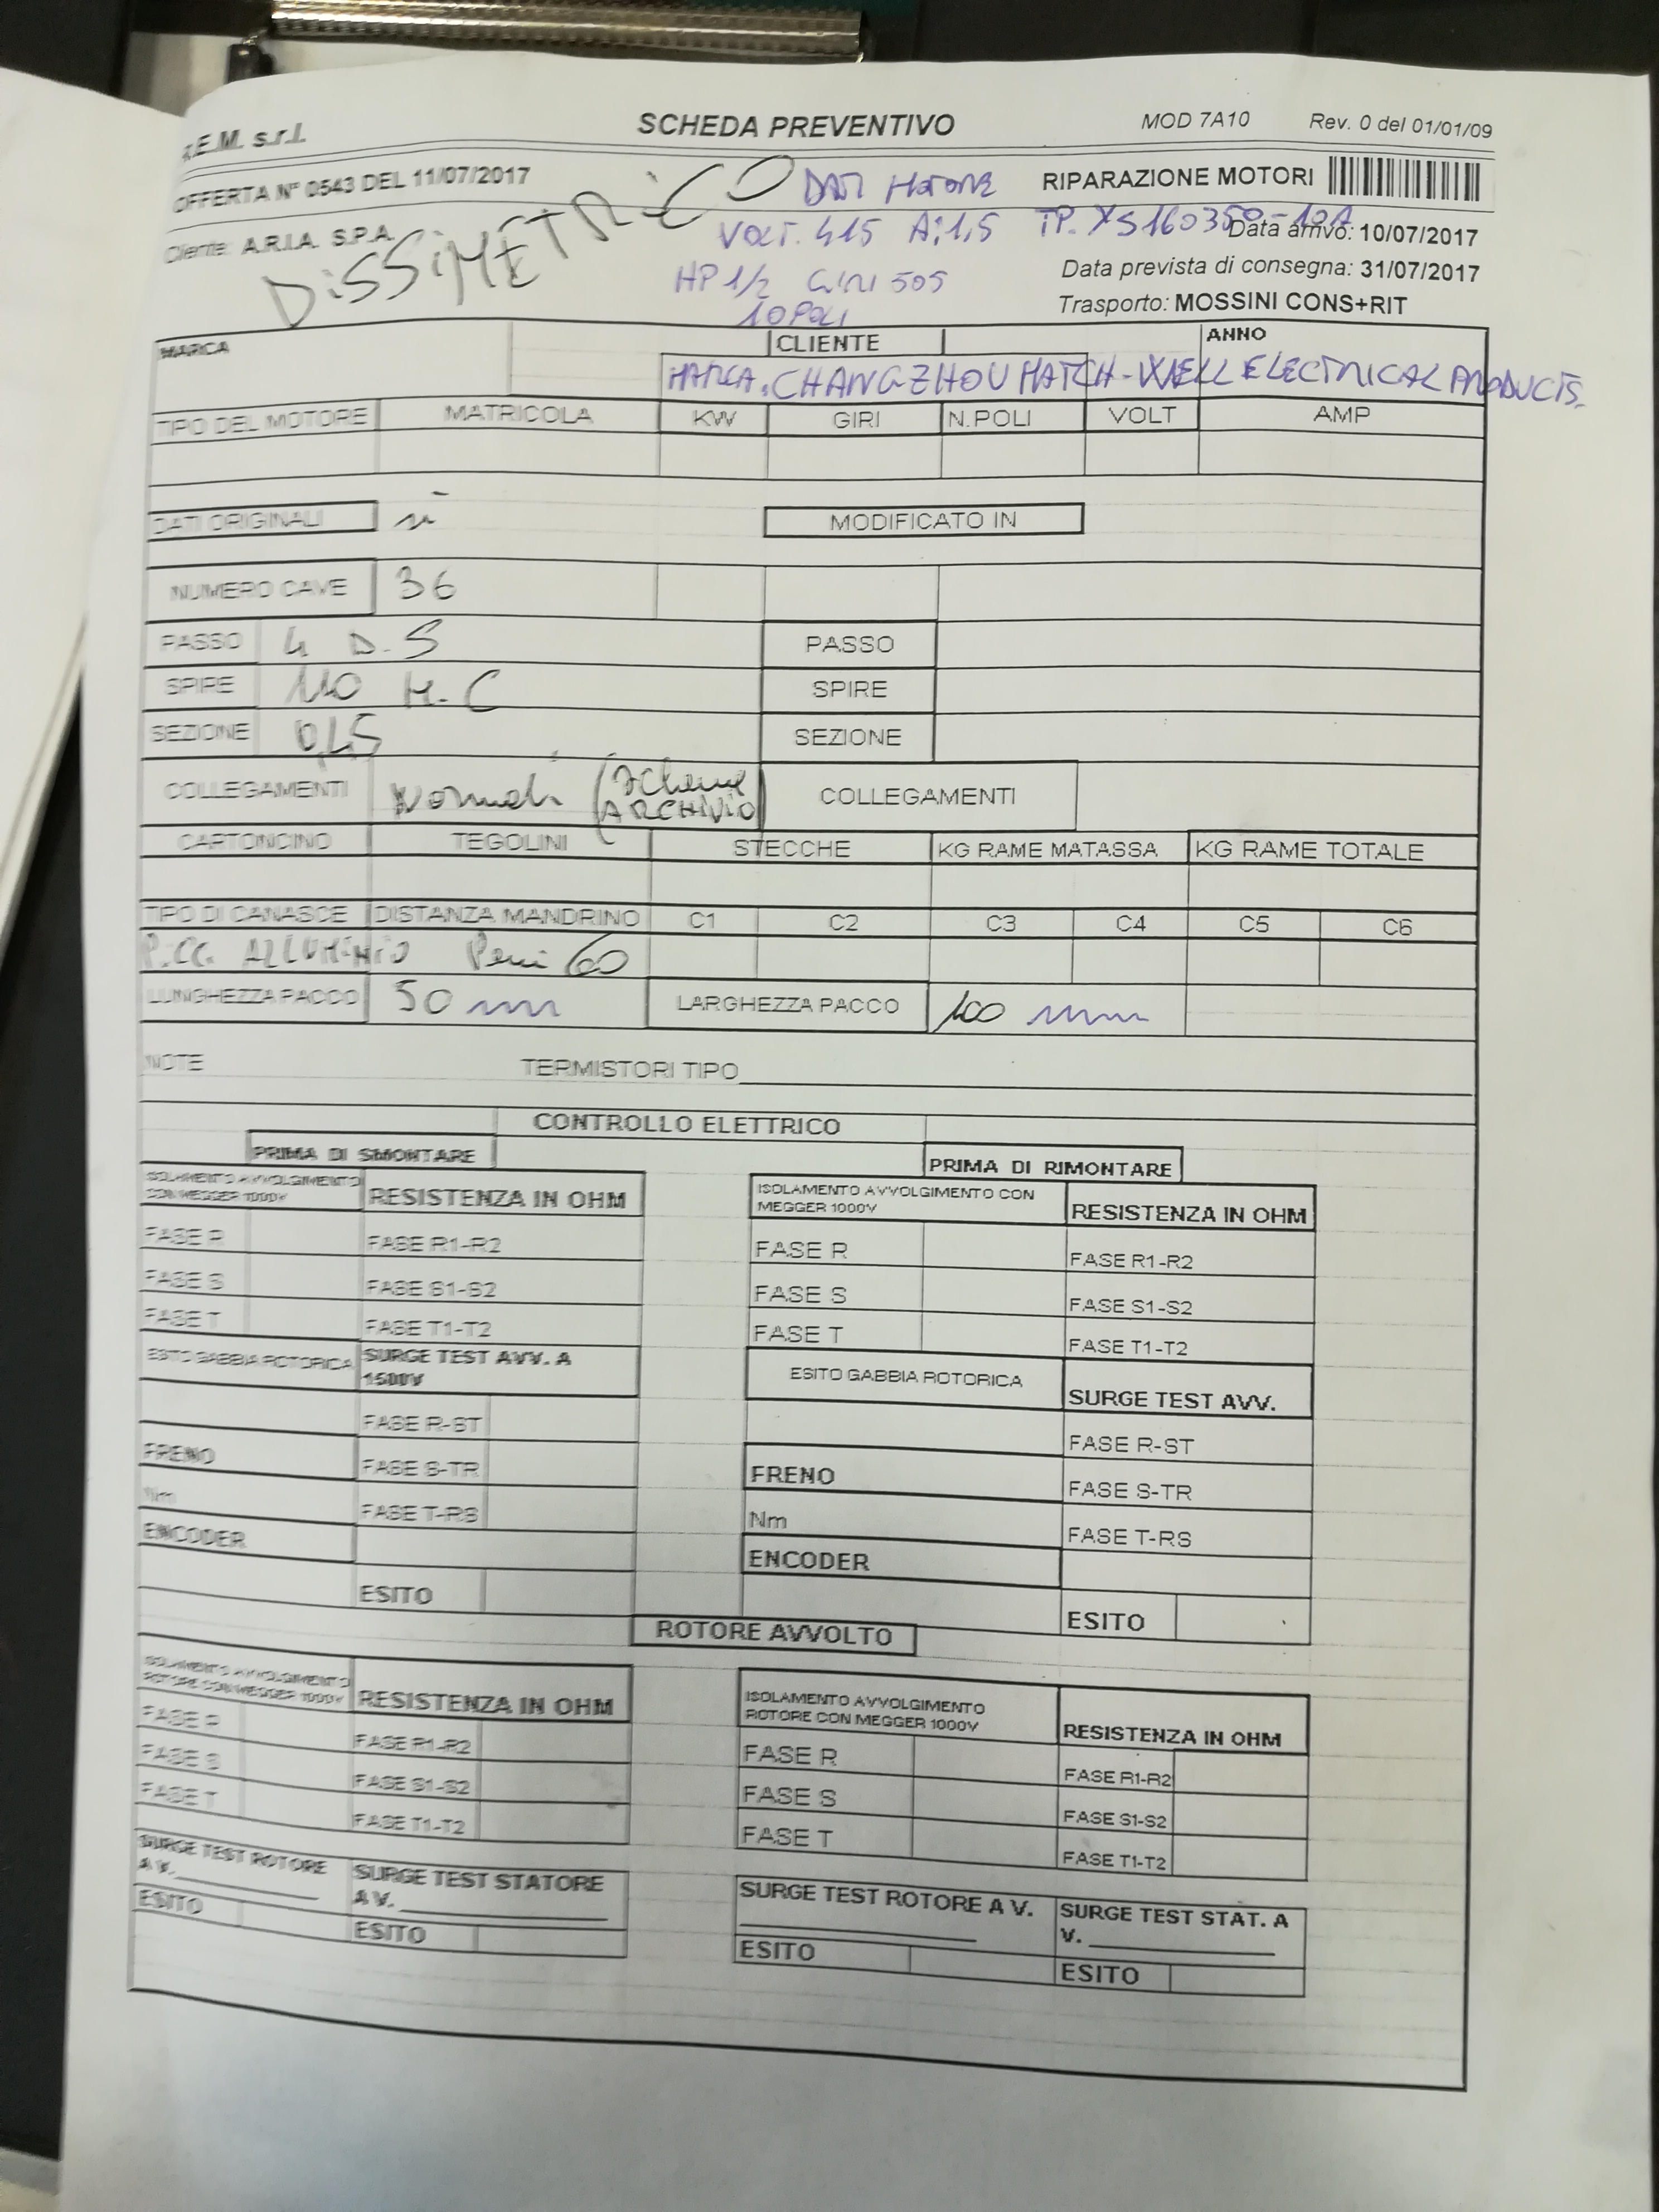 .E.M. s.r.l. SCHEDA PREVENTIVO MOD 7A10 Rev. 0 del 01/01/09
OFFERTA N° 0543 DEL 11/07/2017 DATI MOTORE RIPARAZIONE MOTORI
Cliente: A.R.I.A. S.P.A. DISSIMETRICO VOLT. 415 A:1,5 TP. YS160350-10A Data arrivo: 10/07/2017
HP 1/2 GIRI 505 Data prevista di consegna: 31/07/2017
10 POLI Trasporto: MOSSINI CONS+RIT
MARCA CLIENTE ANNO
MARCA. CHANGZHOU MATCH-WELL ELECTRICAL PRODUCTS.
TIPO DEL MOTORE MATRICOLA KW GIRI N.POLI VOLT AMP
DATI ORIGINALI si MODIFICATO IN
NUMERO CAVE 36
PASSO 4 D.S PASSO
SPIRE 110 M.C SPIRE
SEZIONE 0,45 SEZIONE
COLLEGAMENTI Normali (Schema ARCHIVIO) COLLEGAMENTI
CARTONCINO TEGOLINI STECCHE KG RAME MATASSA KG RAME TOTALE
TIPO DI GANASCE DISTANZA MANDRINO C1 C2 C3 C4 C5 C6
ALLUMINIO 60
LUNGHEZZA PACCO 50 mm LARGHEZZA PACCO 100 mm
NOTE TERMISTORI TIPO
CONTROLLO ELETTRICO
PRIMA DI SMONTARE PRIMA DI RIMONTARE
ISOLAMENTO AVVOLGIMENTO CON MEGGER 1000V RESISTENZA IN OHM ISOLAMENTO AVVOLGIMENTO CON MEGGER 1000V RESISTENZA IN OHM
FASE R FASE R1-R2 FASE R FASE R1-R2
FASE S FASE S1-S2 FASE S FASE S1-S2
FASE T FASE T1-T2 FASE T FASE T1-T2
ESITO GABBIA ROTORICA SURGE TEST AVV. A 1500V ESITO GABBIA ROTORICA SURGE TEST AVV.
FASE R-ST FASE R-ST
FRENO FASE S-TR FRENO FASE S-TR
Nm FASE T-RS Nm FASE T-RS
ENCODER ENCODER
ESITO ESITO
ROTORE AVVOLTO
ISOLAMENTO AVVOLGIMENTO ROTORE CON MEGGER 1000V RESISTENZA IN OHM ISOLAMENTO AVVOLGIMENTO ROTORE CON MEGGER 1000V RESISTENZA IN OHM
FASE R FASE R1-R2 FASE R FASE R1-R2
FASE S FASE S1-S2 FASE S FASE S1-S2
FASE T FASE T1-T2 FASE T FASE T1-T2
SURGE TEST ROTORE A V. SURGE TEST STATORE A V. SURGE TEST ROTORE A V. SURGE TEST STAT. A V.
ESITO ESITO ESITO ESITO